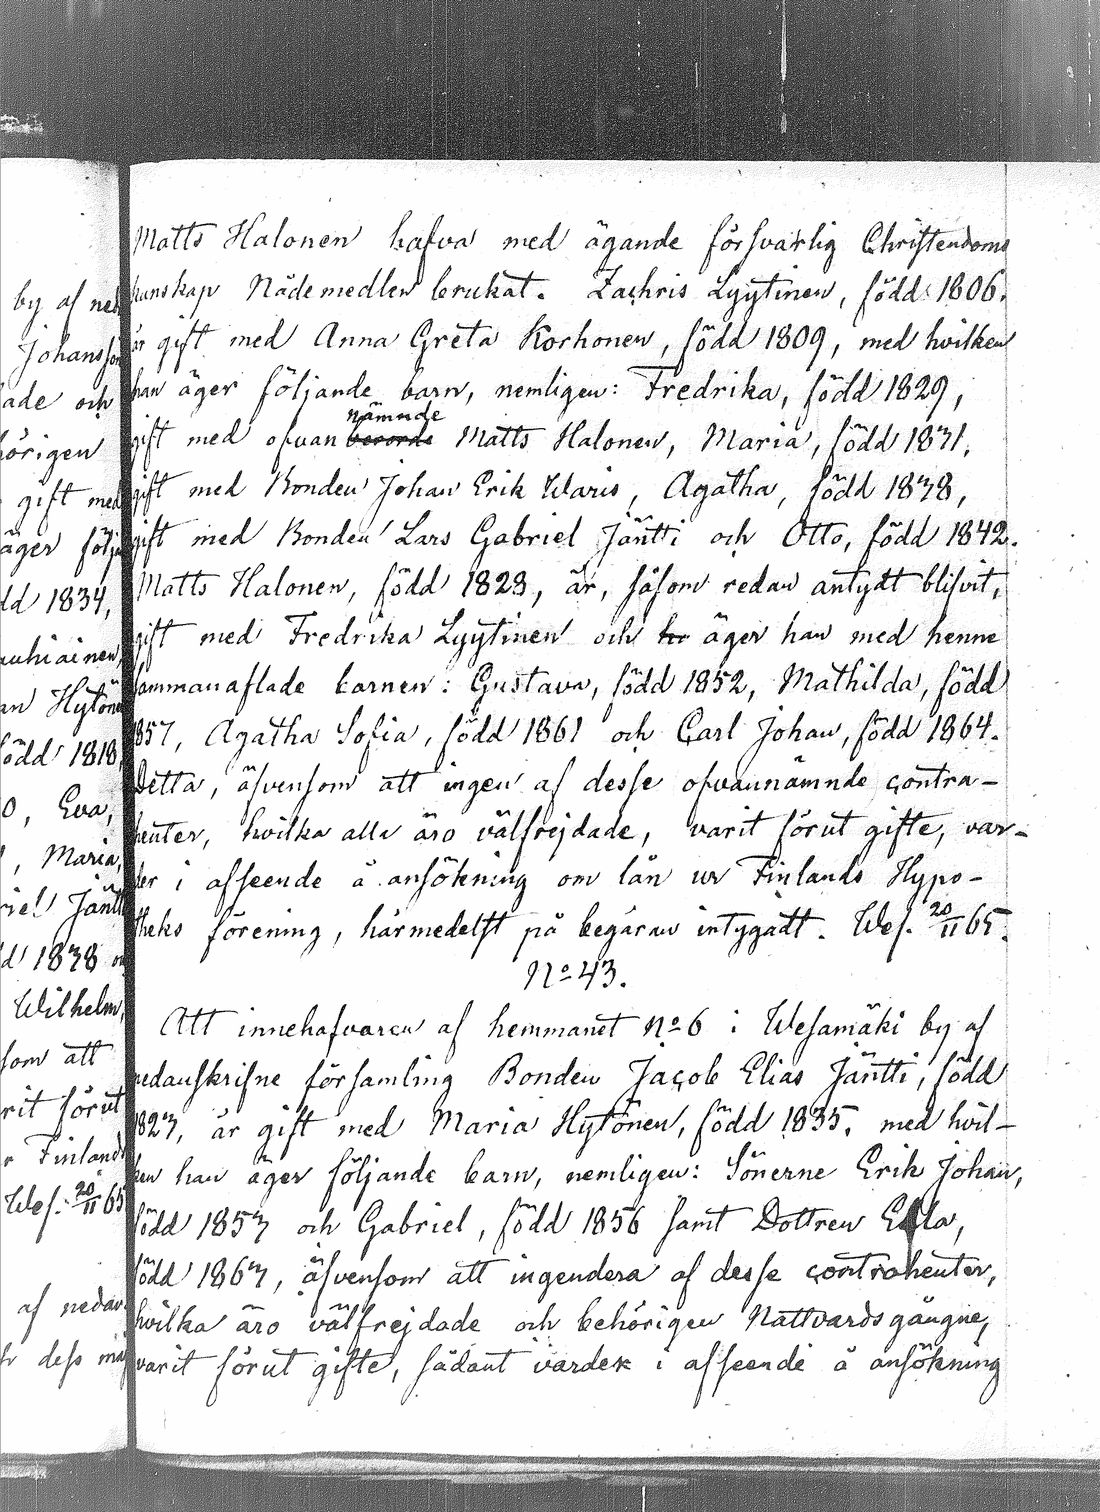 by af ned
Johansson
ade och
hörigen
gift med
äger följ
dd 1834,
auhiainen,
an Hytöne
född 1818
o, Eva,
, Maria,
riel Jänt
d 1838
Wilhelm,
som att
rit förut
r Finland
Wes. 20/11 65
af nedan
h dess må
Matts Halonen hafva med ägande försvarlig Christendoms
kunskap Nådemedlen brukat. Zachris Lyytinen, född 1806.
är gift med Anna Greta Korhonen, född 1809, med hvilken
han äger följande barn, nemligen: Fredrika, född 1829,
nämnde
gift med ofvan berörde Matts Halonen, Maria, född 1831.
gift med Bonden Johan Erik Waris, Agatha, född 1838,
gift med Bonden Lars Gabriel Jäntti och Otto, född 1842.
Matts Halonen, född 1828, är, såsom redan antydt blifvit,
gift med Fredrika Lyytinen och har äger han med henne
sammanaflade barnen: Gustava, född 1852, Mathilda, född
1857, Agatha Sofia, född 1861 och Carl Johan, född 1864.
Detta, äfvensom att ingen af desse ofvannämnde contra-
henter, hvilka alla äro välfrejdade, varit förut gifte, var-
der i afseende å ansökning om lån ur Finlands Hypo-
theks förening, härmedelst på begäran intygadt. Wes. 20/11 65.
No 43.
Att innehafvaren af hemmanet No 6 i Wesamäki by af
nedanskrifne församling Bonden Jacob Elias Jäntti, född
1823, är gift med Maria Hytönen, född 1835, med hvil-
ken han äger följande barn, nemligen: Sönerne Erik Johan,
född 1853 och Gabriel, född 1856 samt Dottren Ella,
född 1863, äfvensom att ingendera af desse contrahenter,
hvilka äro välfrejdade och behörigen Nattvardsgångne,
varit förut gifte, sådant varder i afseende å ansökning